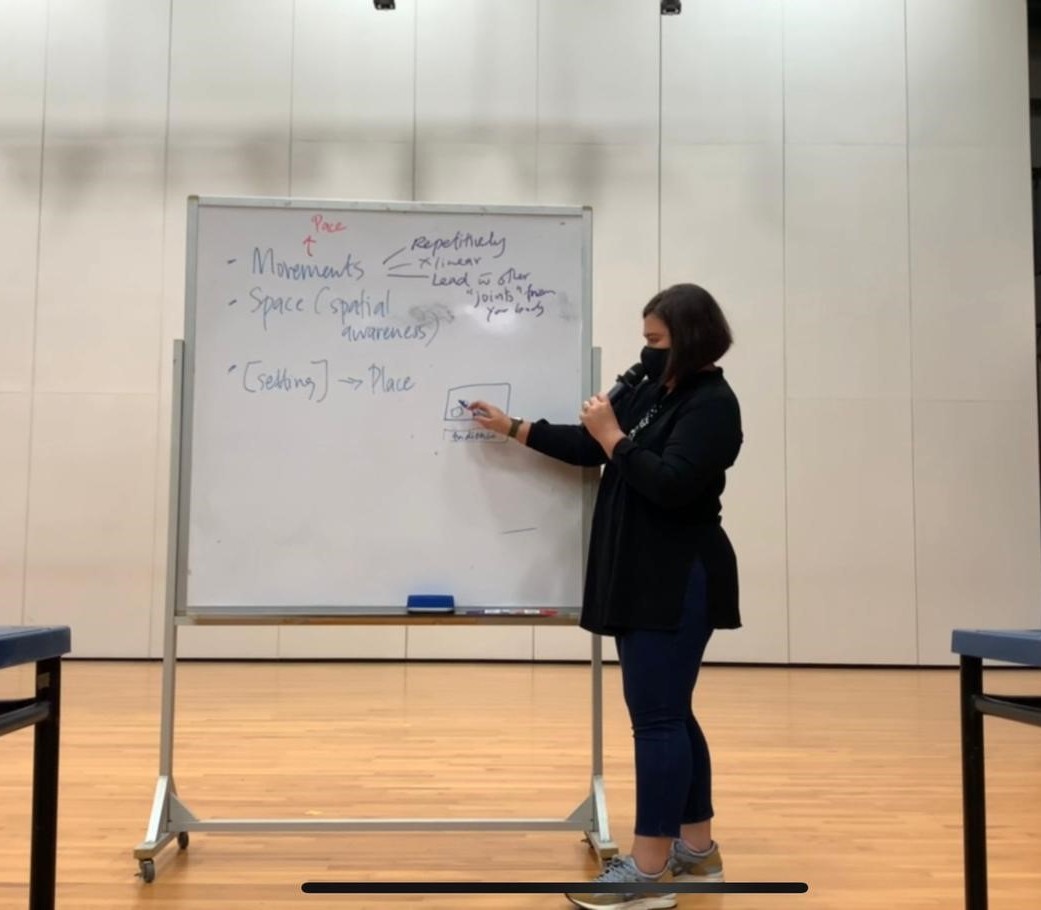 Pace
- Movements
Repetitively
x linear
Lead w̅ other
"joints" from
your body
- Space (spatial
awareness)
- [setting] → Place
Audience